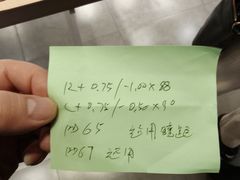 R + 0.75 / -1.00 × 88
L + 0.75 / -0.50 × 90
PD 65 近用瞳距
PD 67 远用